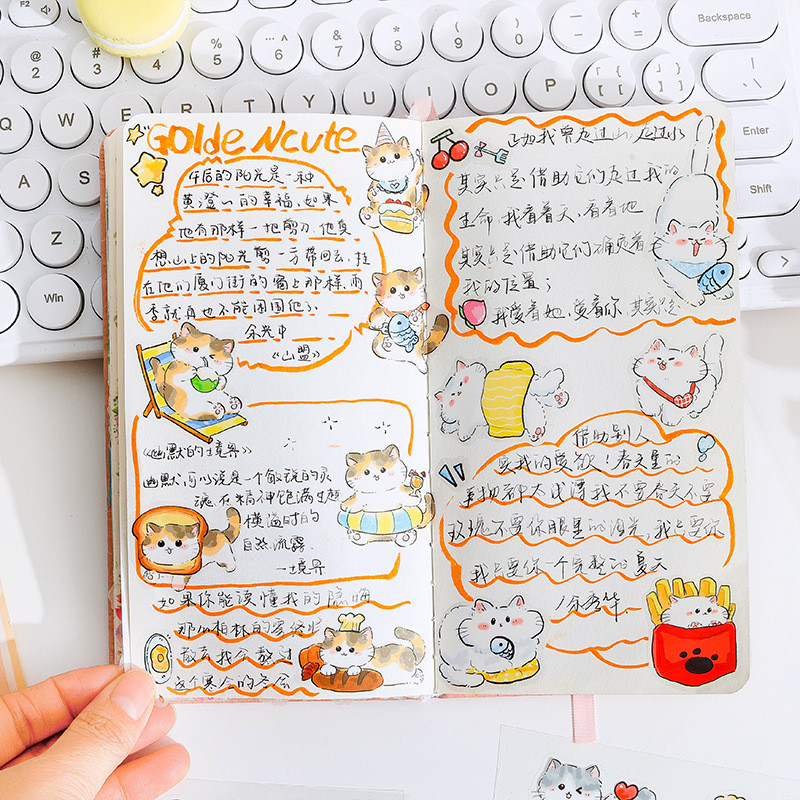 GOlde Ncute
午后的阳光是一种
黄澄澄的幸福,如果
也有那样一把剪刀,他真
想山上的阳光剪一方带回去,挂
在他们厦门街的窗上那样,雨
季就再也不能困囿他了.
余光中
《山盟》
《幽默的境界》
幽默,可以说是一个敏锐的灵
魂,在精神饱满生趣
横溢时的
自然流露.
—境界
如果你能读懂我的隐晦
散去我会熬过
这个寒令的冬会
比如我曾走过山,走过水
其实只是借助它们走过我的
生命,我看着天,看着地
其实只是借助它们确定着
我的位置;
我爱着她,爱着你,其实只是
借助别人
实我的爱欲!春天里的
事物都太浅薄我不要春天不要
玫瑰不要你眼里的泪光,我只要你
我只要你一个完整的夏天
/余秀华
F2
@
2
#
3
$
4
%
5
^
6
&
7
*
8
(
9
)
0
+
=
Backspace
Q
W
E
R
T
Y
U
I
O
P
Enter
A
S
Shift
Z
Win